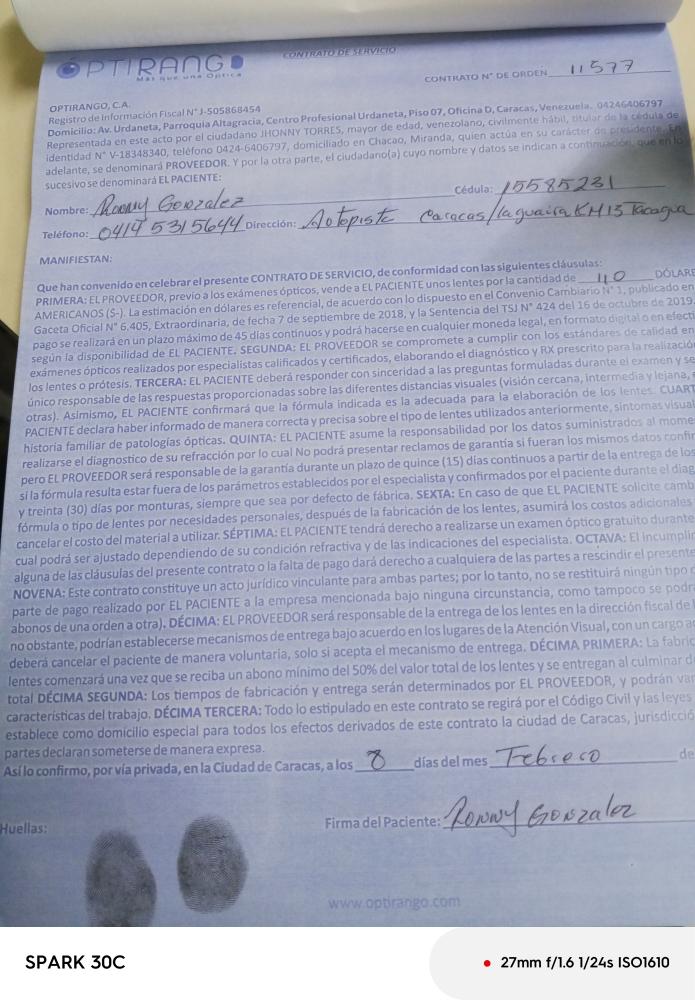 OPTIRANGO
Más que una Óptica
CONTRATO DE SERVICIO
CONTRATO N° DE ORDEN 11577
OPTIRANGO, C.A.
Registro de Información Fiscal N° J-505868454
Domicilio: Av. Urdaneta, Parroquia Altagracia, Centro Profesional Urdaneta, Piso 07, Oficina D, Caracas, Venezuela. 04246406797
Representada en este acto por el ciudadano JHONNY TORRES, mayor de edad, venezolano, civilmente hábil, titular de la cédula de
identidad N° V-18348340, teléfono 0424-6406797, domiciliado en Chacao, Miranda, quien actúa en su carácter de presidente. En
adelante, se denominará PROVEEDOR. Y por la otra parte, el ciudadano(a) cuyo nombre y datos se indican a continuación, que en lo
sucesivo se denominará EL PACIENTE:
Nombre: Ronny Gonzalez Cédula: 15585231
Teléfono: 0414 5315644 Dirección: Autopista Caracas/la guaira KM13 Tacagua
MANIFIESTAN:
Que han convenido en celebrar el presente CONTRATO DE SERVICIO, de conformidad con las siguientes cláusulas:
PRIMERA: EL PROVEEDOR, previo a los exámenes ópticos, vende a EL PACIENTE unos lentes por la cantidad de 110 DÓLARE
AMERICANOS ($-). La estimación en dólares es referencial, de acuerdo con lo dispuesto en el Convenio Cambiario N° 1, publicado en
Gaceta Oficial N° 6.405, Extraordinaria, de fecha 7 de septiembre de 2018, y la Sentencia del TSJ N° 424 del 16 de octubre de 2019
pago se realizará en un plazo máximo de 45 días continuos y podrá hacerse en cualquier moneda legal, en formato digital o en efecti
según la disponibilidad de EL PACIENTE. SEGUNDA: EL PROVEEDOR se compromete a cumplir con los estándares de calidad en
exámenes ópticos realizados por especialistas calificados y certificados, elaborando el diagnóstico y RX prescrito para la realizació
los lentes o prótesis. TERCERA: EL PACIENTE deberá responder con sinceridad a las preguntas formuladas durante el examen y se
único responsable de las respuestas proporcionadas sobre las diferentes distancias visuales (visión cercana, intermedia y lejana,
otras). Asimismo, EL PACIENTE confirmará que la fórmula indicada es la adecuada para la elaboración de los lentes. CUART
PACIENTE declara haber informado de manera correcta y precisa sobre el tipo de lentes utilizados anteriormente, síntomas visual
historia familiar de patologías ópticas. QUINTA: EL PACIENTE asume la responsabilidad por los datos suministrados al mome
realizarse el diagnostico de su refracción por lo cual No podrá presentar reclamos de garantía si fueran los mismos datos confir
pero EL PROVEEDOR será responsable de la garantía durante un plazo de quince (15) días continuos a partir de la entrega de los
si la fórmula resulta estar fuera de los parámetros establecidos por el especialista y confirmados por el paciente durante el diag
y treinta (30) días por monturas, siempre que sea por defecto de fábrica. SEXTA: En caso de que EL PACIENTE solicite camb
fórmula o tipo de lentes por necesidades personales, después de la fabricación de los lentes, asumirá los costos adicionales
cancelar el costo del material a utilizar. SÉPTIMA: EL PACIENTE tendrá derecho a realizarse un examen óptico gratuito durante
cual podrá ser ajustado dependiendo de su condición refractiva y de las indicaciones del especialista. OCTAVA: El incumplir
alguna de las cláusulas del presente contrato o la falta de pago dará derecho a cualquiera de las partes a rescindir el presente
NOVENA: Este contrato constituye un acto jurídico vinculante para ambas partes; por lo tanto, no se restituirá ningún tipo
parte de pago realizado por EL PACIENTE a la empresa mencionada bajo ninguna circunstancia, como tampoco se podr
abonos de una orden a otra). DÉCIMA: EL PROVEEDOR será responsable de la entrega de los lentes en la dirección fiscal de
no obstante, podrían establecerse mecanismos de entrega bajo acuerdo en los lugares de la Atención Visual, con un cargo a
deberá cancelar el paciente de manera voluntaria, solo si acepta el mecanismo de entrega. DÉCIMA PRIMERA: La fabric
lentes comenzará una vez que se reciba un abono mínimo del 50% del valor total de los lentes y se entregan al culminar d
total DÉCIMA SEGUNDA: Los tiempos de fabricación y entrega serán determinados por EL PROVEEDOR, y podrán var
características del trabajo. DÉCIMA TERCERA: Todo lo estipulado en este contrato se regirá por el Código Civil y las leyes
establece como domicilio especial para todos los efectos derivados de este contrato la ciudad de Caracas, jurisdicció
partes declaran someterse de manera expresa.
Así lo confirmo, por vía privada, en la Ciudad de Caracas, a los 8 días del mes Febrero de
Huellas:
Firma del Paciente: Ronny Gonzalez
www.optirango.com
SPARK 30C
27mm f/1.6 1/24s ISO1610